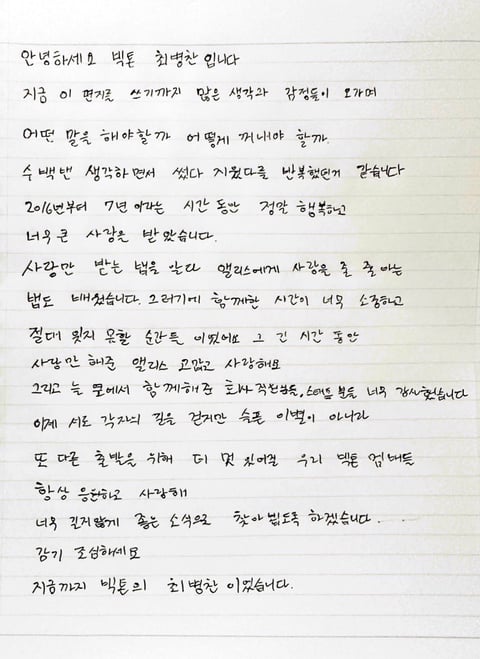 안녕하세요 빅톤 최병찬입니다
지금 이 편지를 쓰기까지 많은 생각과 감정들이 오가며
어떤 말을 해야할까 어떻게 꺼내야 할까
수백번 생각하면서 썼다 지웠다를 반복했던거 같습니다
2016년부터 7년이라는 시간동안 정말 행복하고
너무 큰 사랑을 받았습니다.
사랑만 받는 법을 알다 앨리스에게 사랑을 줄 줄 아는
법도 배웠습니다. 그러기에 함께한 시간이 너무 소중하고
절대 잊지 못할 순간들이었어요 그 긴 시간 동안
사랑만 해준 앨리스 고맙고 사랑해요
그리고 늘 옆에서 함께해준 회사 직원분들, 스태프 분들 너무 감사했습니다
이제 서로 각자의 길을 걷지만 슬픈 이별이 아니라
또 다른 출발을 위해 더 멋있어질 우리 빅톤 멤버들
항상 응원하고 사랑해
너무 길지않게 좋은 소식으로 찾아뵙도록 하겠습니다...
감기 조심하세요
지금까지 빅톤의 최병찬이었습니다.